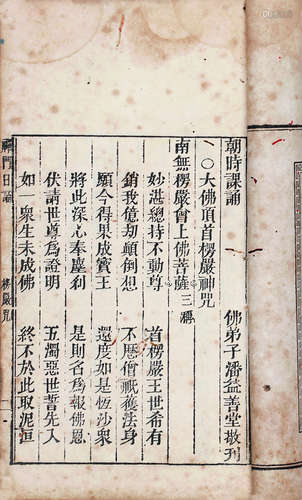 朝時課誦　佛弟子潘益善堂敬刊
一○大佛頂首楞嚴神咒
南無楞嚴會上佛菩薩三稱
妙湛總持不動尊　首楞嚴王世希有
銷我億劫顛倒想　不歷僧祇獲法身
願今得果成寶王　還度如是恆沙衆
將此深心奉塵刹　是則名爲報佛恩
伏請世尊爲證明　五濁惡世誓先入
如一衆生未成佛　終不於此取泥洹
禪門日誦　楞嚴咒　一